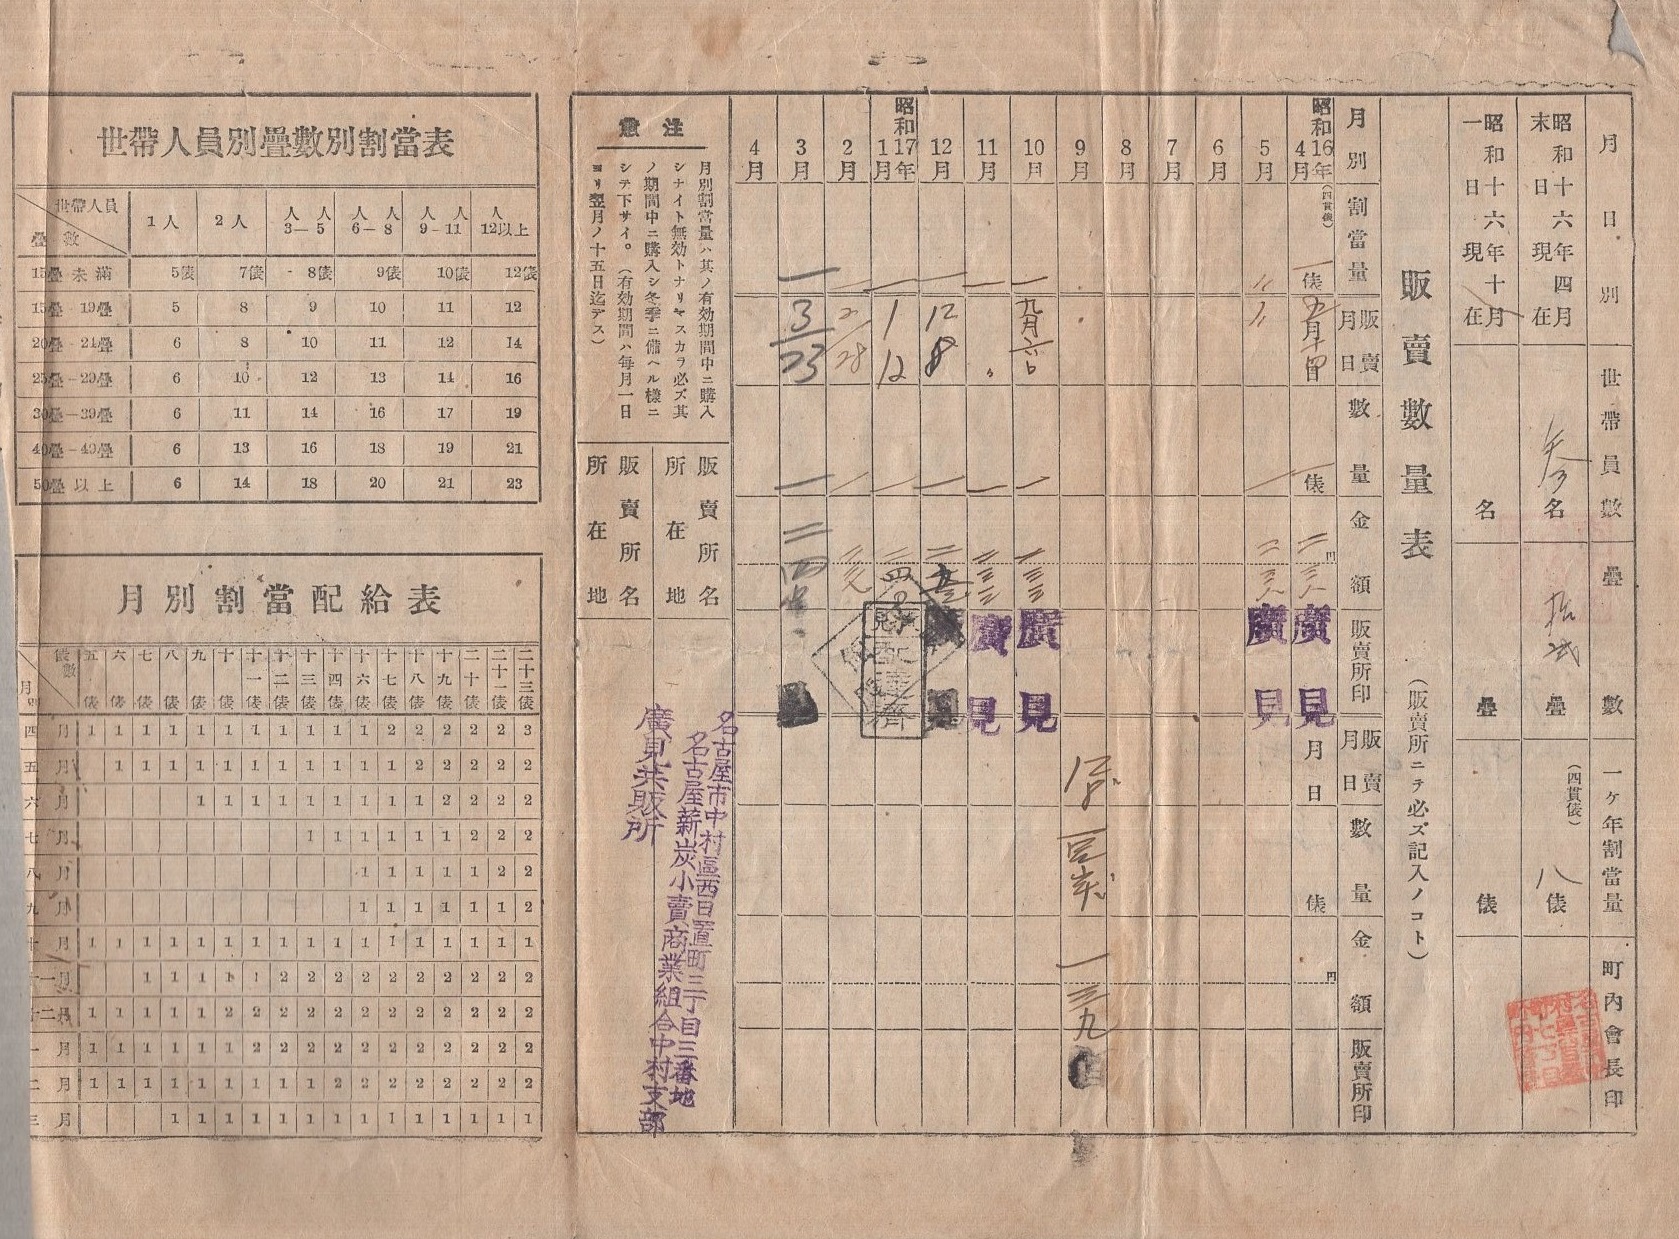 月日別
世帶員數
疊數
一ヶ年割當量
町內會長印
昭和十六年四月
末日現在
參名
拾弐疊
(四貫俵)
八俵
昭和十六年十月
一日現在
名
疊
俵
販賣數量表
(販賣所ニテ必ズ記入ノコト)
月別
割當量
販賣月日
數量
金額
販賣所印
販賣月日
數量
金額
販賣所印
昭和16年4月
(四貫俵)
一俵
一俵
円
廣見
月日
俵
円
5月
廣見
6月
7月
8月
9月
一三九
10月
廣見
11月
廣見
12月
12
8
昭和17年1月
1
12
2月
2
28
3月
3
23
4月
注意
月別割當量ハ其ノ有効期間中ニ購入
シナイト無効トナリマスカラ必ズ其
ノ期間中ニ購入シ冬季ニ備ヘル樣ニ
シテ下サイ。(有効期間ハ每月一日
ヨリ翌月ノ十五日迄デス)
販賣所名
所在地
販賣所名
所在地
名古屋市中村區西日置町三丁目三番地
名古屋薪炭小賣商業組合中村支部
廣見共販所
世帶人員別疊數別割當表
世帶人員 疊數 1人 2人 3—5人 6—8人 9-11人 12以上人
15疊未滿 5俵 7俵 8俵 9俵 10俵 12俵
15疊-19疊 5 8 9 10 11 12
20疊-24疊 6 8 10 11 12 14
25疊-29疊 6 10 12 13 14 16
30疊-39疊 6 11 14 16 17 19
40疊-49疊 6 13 16 18 19 21
50疊以上 6 14 18 20 21 23
月別割當配給表
俵數 月別 五俵 六俵 七俵 八俵 九俵 十俵 十一俵 十二俵 十三俵 十四俵 十六俵 十七俵 十八俵 十九俵 二十俵 二十一俵 二十三俵
四月 1 1 1 1 1 1 1 1 1 1 1 2 2 2 2 2 3
五月 1 1 1 1 1 1 1 1 1 1 1 2 2 2 2 2
六月 1 1 1 1 1 1 1 1 1 2 2 2 2
七月 1 1 1 1 1 1 2 2 2
八月 1 1 1 1 1 2 2
九月 1 1 1 1 1 1 2
十月 1 1 1 1 1 1 1 1 1 1 1 1 1 1 1 1 1
十一月 1 1 1 1 1 2 2 2 2 2 2 2 2 2 2
十二月 1 1 1 1 1 2 2 2 2 2 2 2 2 2 2 2 2
一月 1 1 1 1 1 1 2 2 2 2 2 2 2 2 2 2 2
二月 1 1 1 1 1 1 1 1 1 2 2 2 2 2 2 2 2
三月 1 1 1 1 1 1 1 1 1 1 1 1 1 1